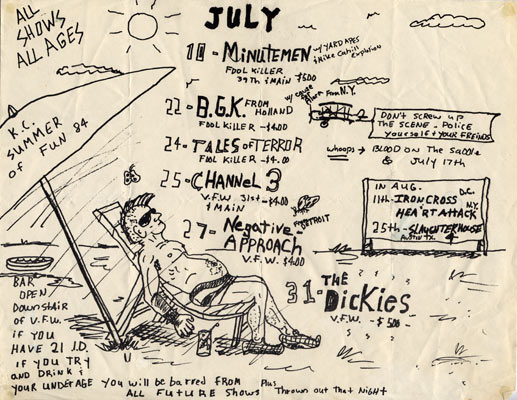 ALL
SHOWS
ALL AGES
JULY
10 - MINUTEMEN w/ YARD APES
& Mike Cahill Explosion
FOOL KILLER
39TH & MAIN $5.00
22 - B.G.K. FROM HOllAND
FOOL KILLER - $4.00
w/ Cause for
Alarm From N.Y.
24 - TALES OF TERROR
FOOL KILLER - $4.00
25 - CHANNEL 3
V.F.W. 31st - $4.00
& MAIN
27 - Negative
APPROACH
OF DETROIT
V.F.W. $4.00
31 - THE
DicKies
V.F.W. - $5.00 -
K.C.
SUMMER
OF FUN 84
DON'T SCREW UP
THE SCENE - POLICE
yourself & YOUR FRIENDS
whoops → BLOOD ON The Saddle
& July 17th
IN AUG.
11th - IRON CROSS D.C.
HEART ATTACK N.Y.
25th - SLAUGHTERHOUSE
4
AUSTIN TX.
BAR
OPEN
Downstair
of V.F.W.
if you
HAVE 21 I.D.
IF YOU TRY
AND DRINK &
YOUR UNDERAGE YOU will be barred FROM Plus
ALL FUTURE Shows Thrown out That NigHt